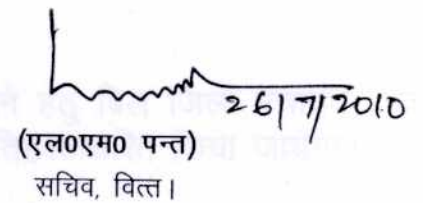 26/7/2010
(एल0एम0 पन्त)
सचिव, वित्त।